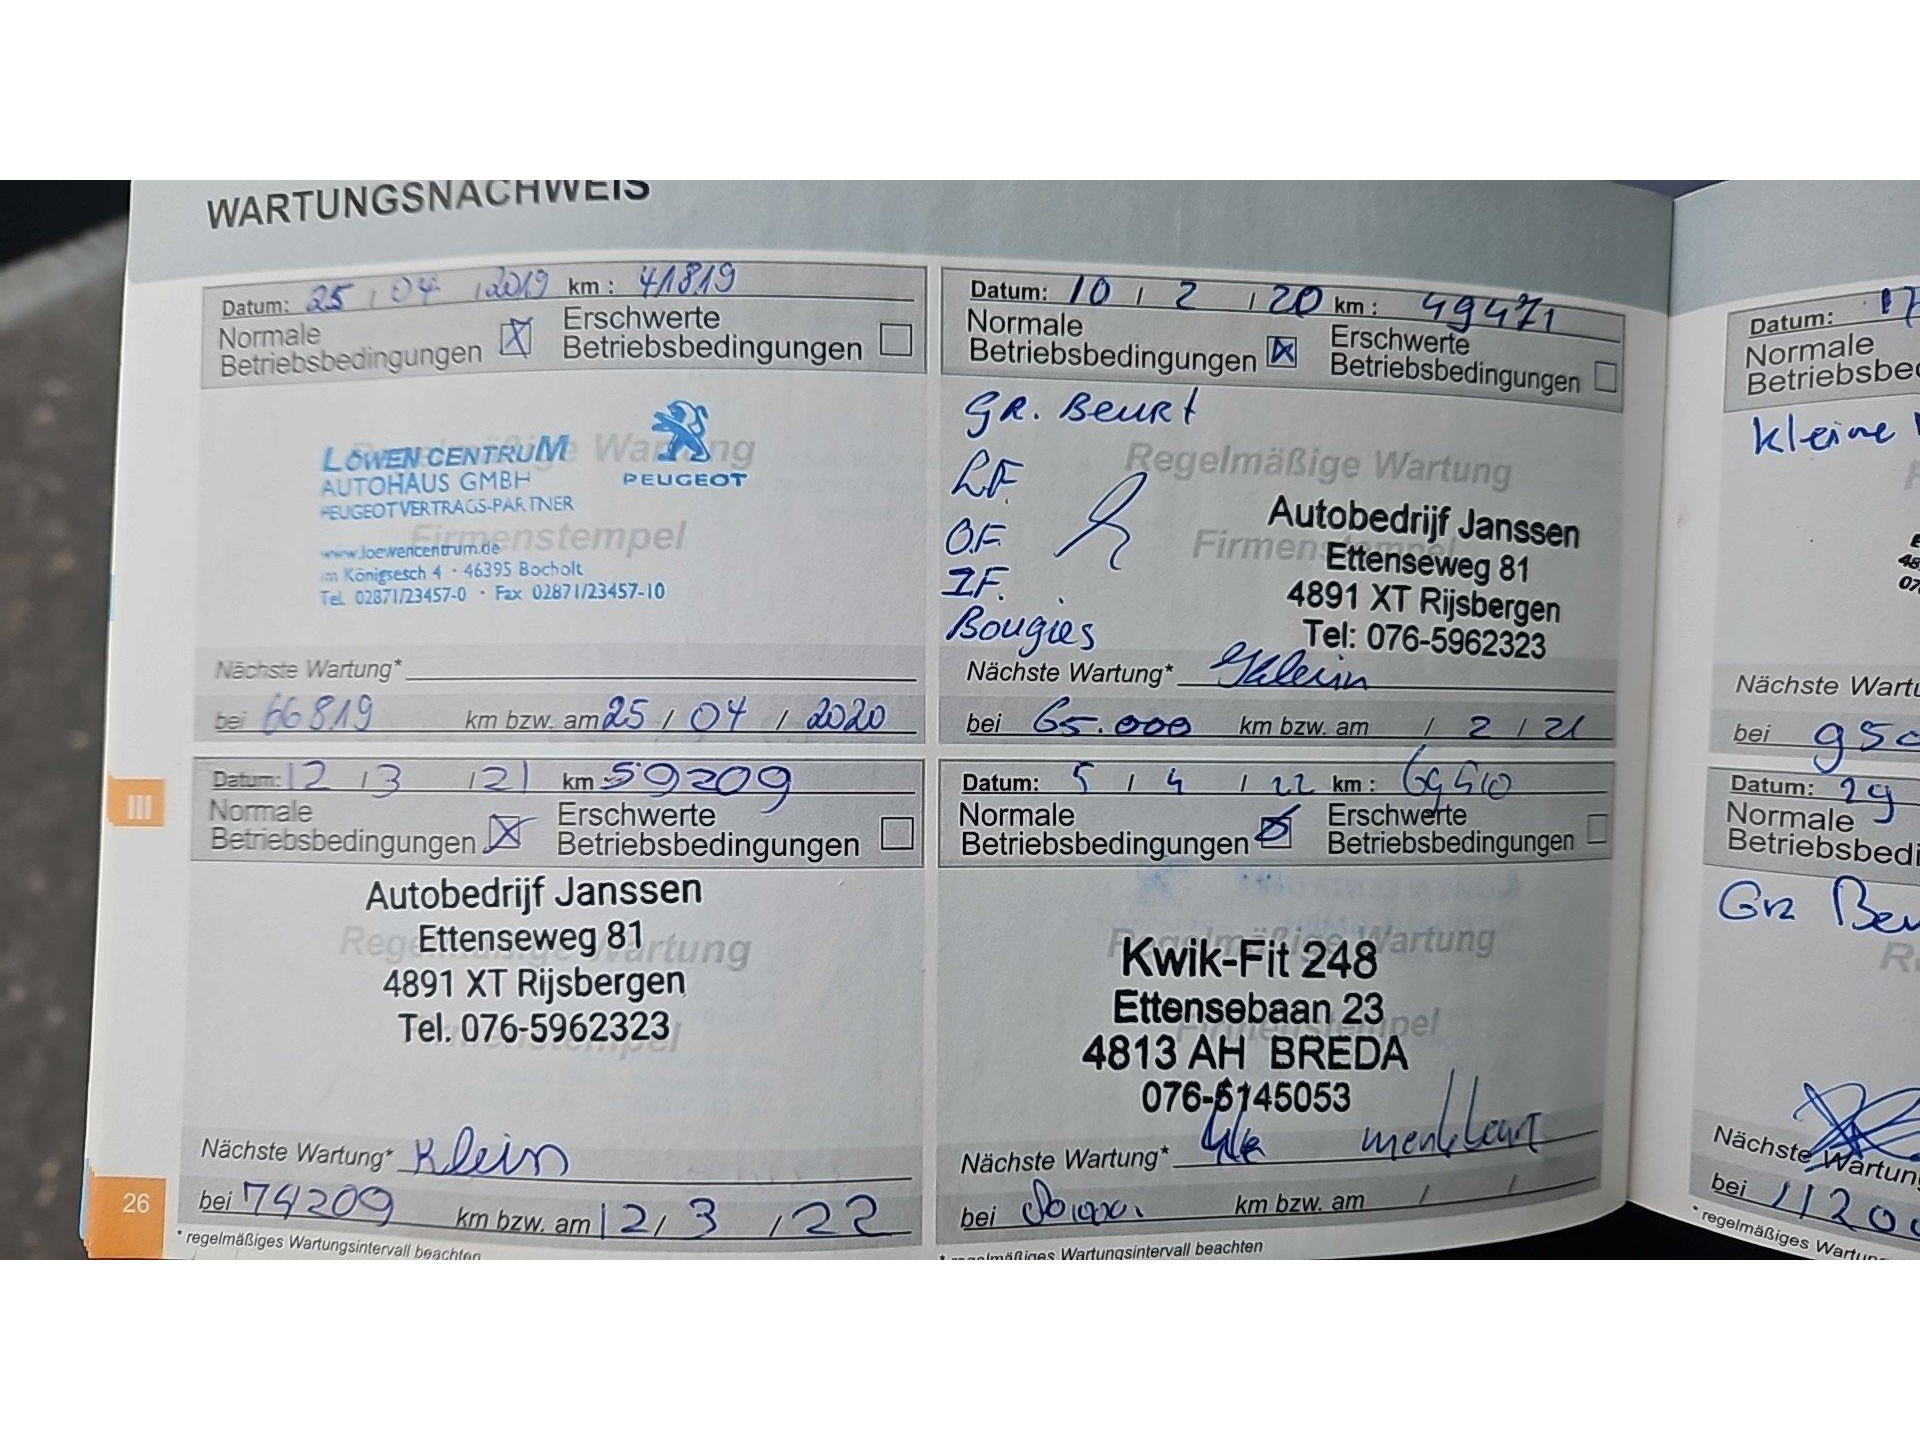 WARTUNGSNACHWEIS
Datum: 25 / 04 / 2019 km : 41819
Normale Betriebsbedingungen Erschwerte Betriebsbedingungen
Regelmäßige Wartung
LÖWEN CENTRUM
AUTOHAUS GMBH
PEUGEOT VERTRAGS-PARTNER
PEUGEOT
Firmenstempel
www.loewencentrum.de
Im Königsesch 4 · 46395 Bocholt
Tel. 02871/23457-0 · Fax 02871/23457-10
Nächste Wartung*
bei 66819 km bzw. am 25 / 04 / 2020
Datum: 10 / 2 / 20 km : 49471
Normale Betriebsbedingungen Erschwerte Betriebsbedingungen
GR. Beurt
Regelmäßige Wartung
L.F.
O.F.
I.F.
Bougies
Firmenstempel
Autobedrijf Janssen
Ettenseweg 81
4891 XT Rijsbergen
Tel: 076-5962323
Nächste Wartung* Klein
bei 65.000 km bzw. am / 2 / 21
Datum: 12 / 3 / 21 km : 59209
Normale Betriebsbedingungen Erschwerte Betriebsbedingungen
Autobedrijf Janssen
Ettenseweg 81
Regelmäßige Wartung
4891 XT Rijsbergen
Tel. 076-5962323
Firmenstempel
Nächste Wartung* Klein
bei 74209 km bzw. am 12 / 3 / 22
* regelmäßiges Wartungsintervall beachten
Datum: 5 / 4 / 22 km : 69510
Normale Betriebsbedingungen Erschwerte Betriebsbedingungen
Regelmäßige Wartung
Kwik-Fit 248
Ettensebaan 23
Firmenstempel
4813 AH BREDA
076-5145053
Nächste Wartung*
bei km bzw. am / /
* regelmäßiges Wartungsintervall beachten
III
26
Datum: 17
Normale
Betriebsbe
Kleine
Nächste Wartu
bei 950
Datum: 29
Normale
Betriebsbedi
Gr Beu
Nächste Wartun
bei 11200
* regelmäßiges Wartun